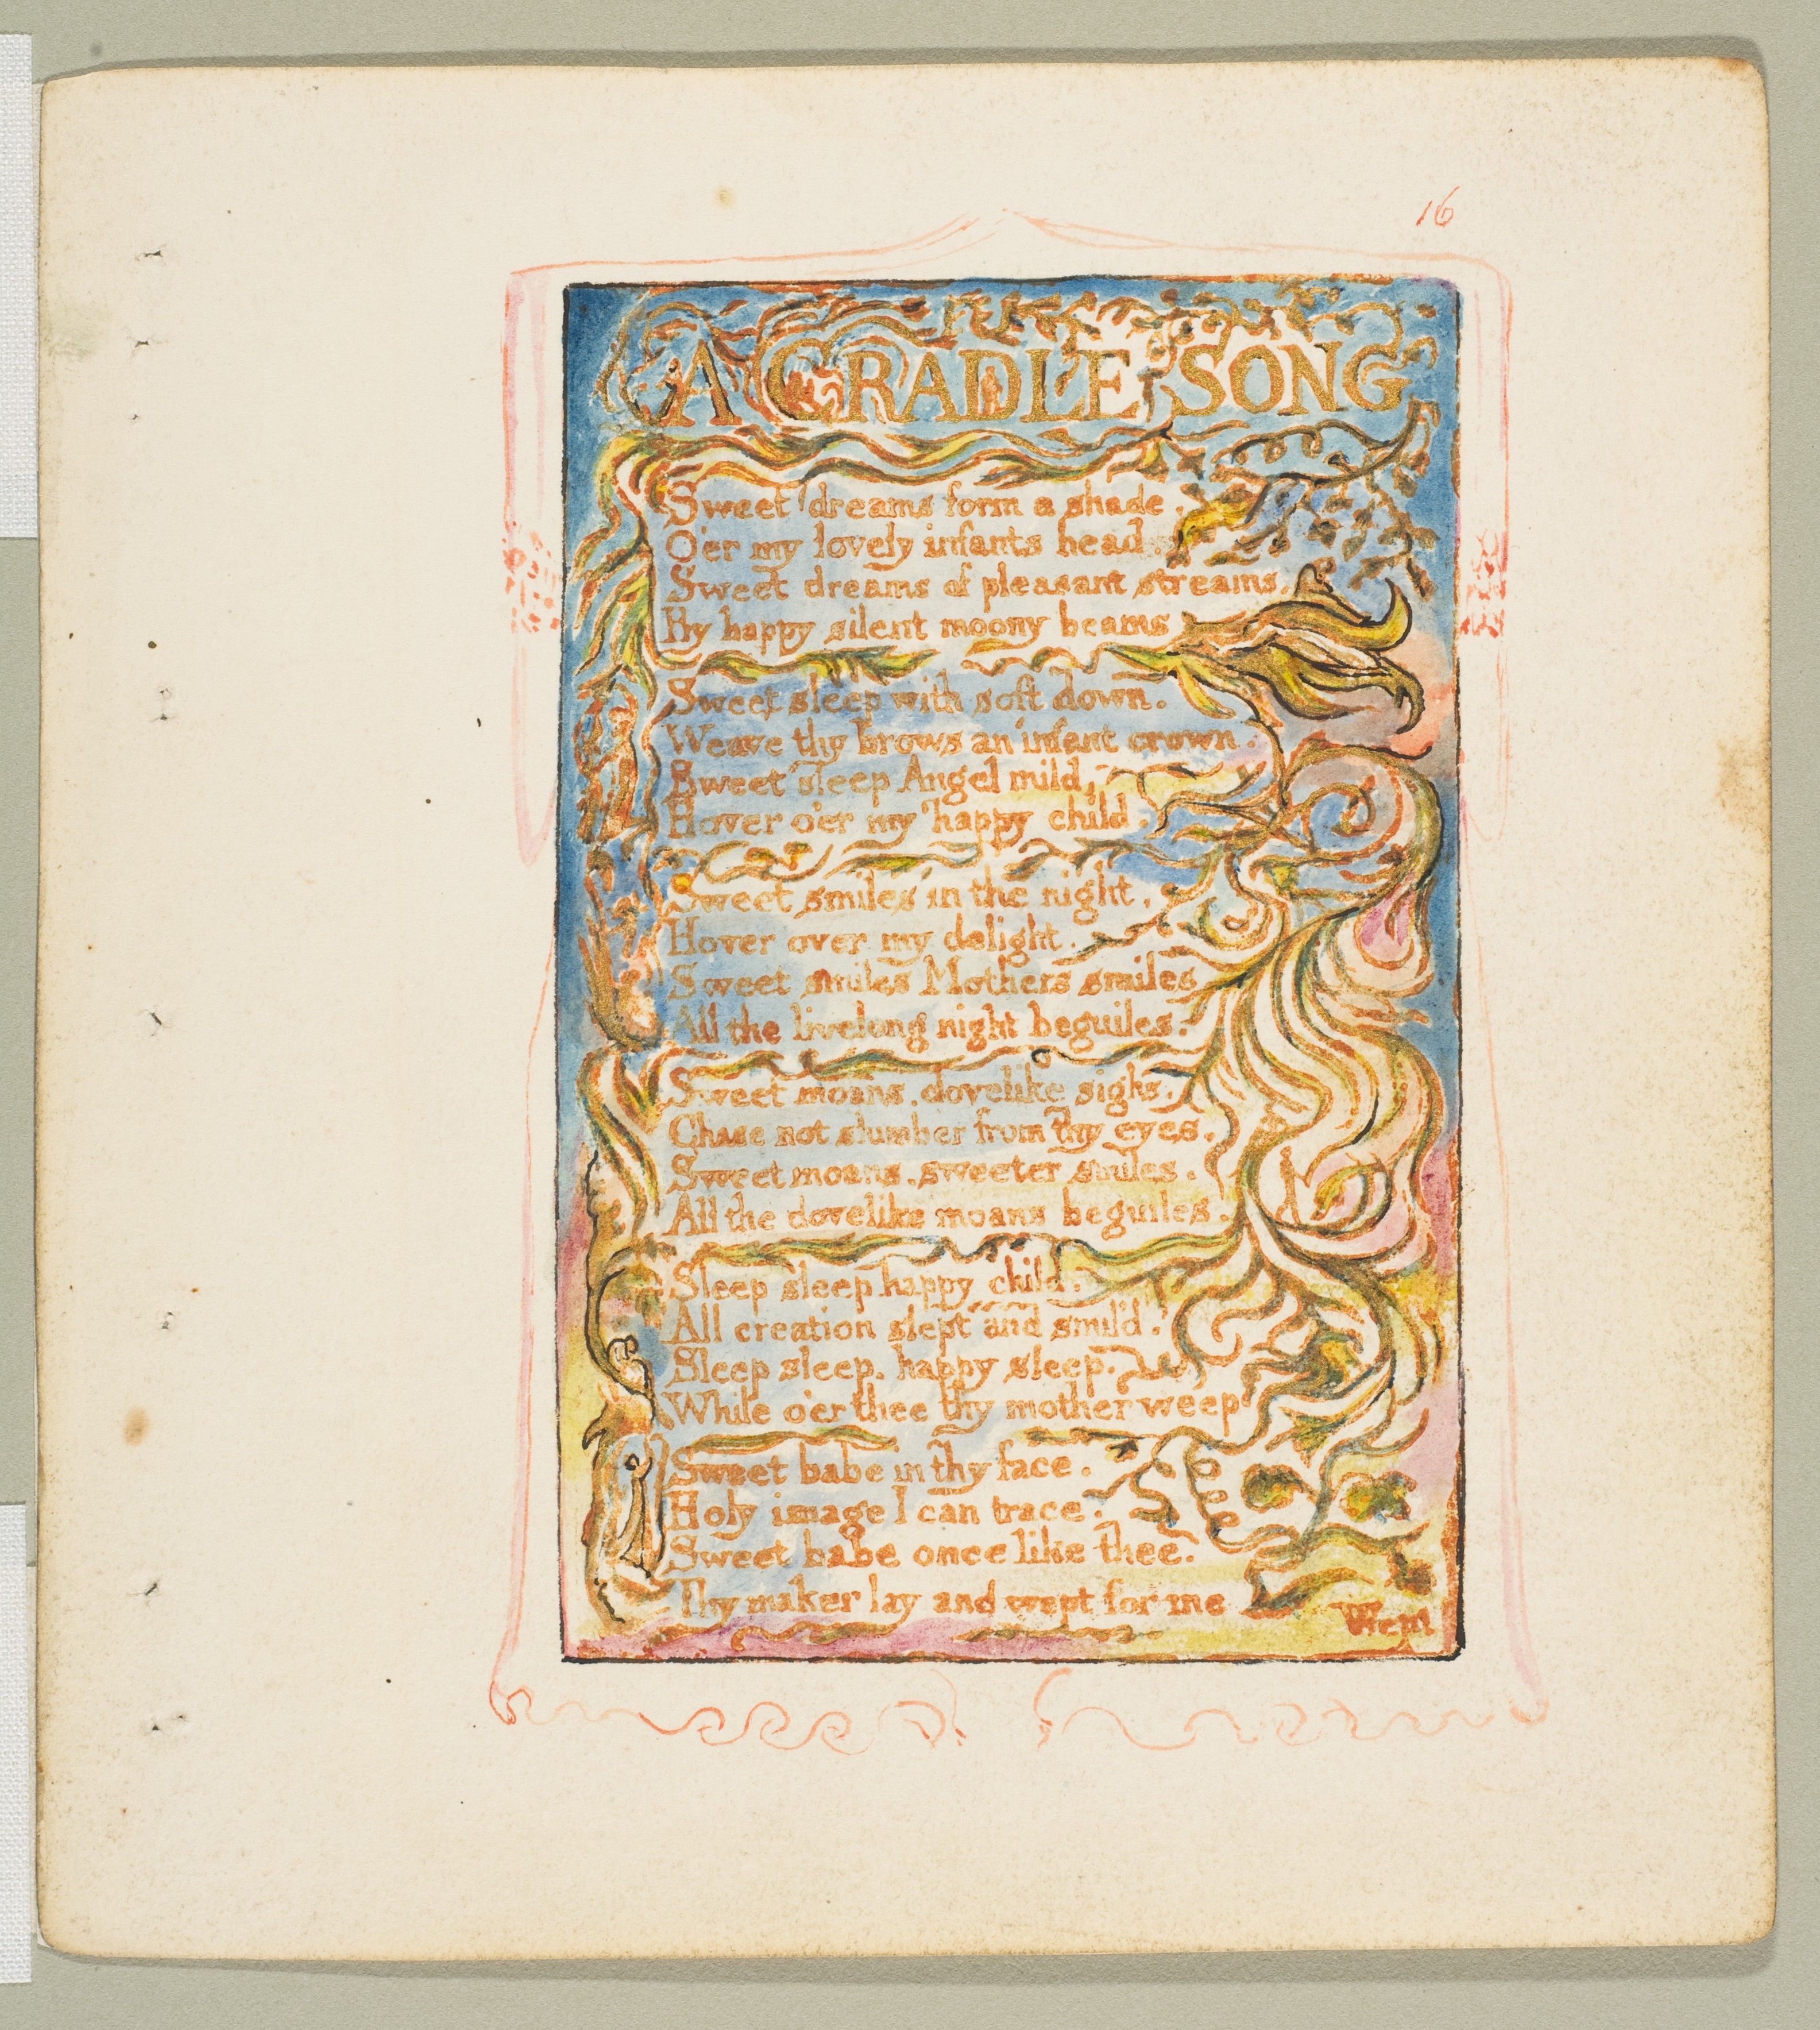 16
A CRADLE SONG
Sweet dreams form a shade,
O'er my lovely infants head.
Sweet dreams of pleasant streams,
By happy silent moony beams
Sweet sleep with soft down.
Weave thy brows an infant crown.
Sweet sleep Angel mild,
Hover o'er my happy child.
Sweet smiles in the night,
Hover over my delight.
Sweet smiles Mothers smiles
All the livelong night beguiles.
Sweet moans, dovelike sighs,
Chase not slumber from thy eyes.
Sweet moans, sweeter smiles.
All the dovelike moans beguiles.
Sleep sleep happy child.
All creation slept and smil'd.
Sleep sleep, happy sleep.
While o'er thee thy mother weep
Sweet babe in thy face.
Holy image I can trace.
Sweet babe once like thee.
Thy maker lay and wept for me
Wept